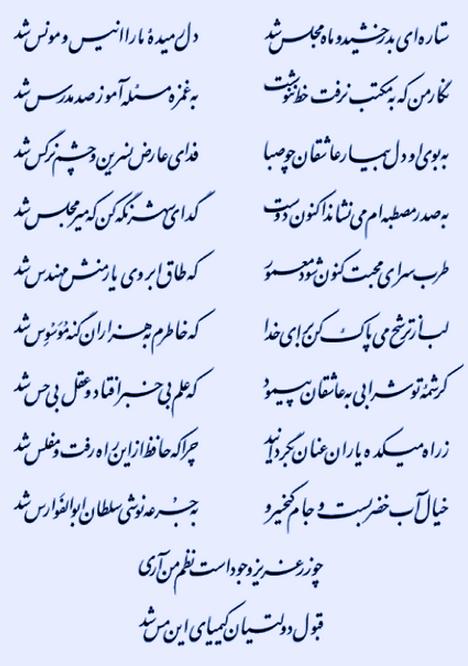 ستاره‌ای بدرخشید و ماه مجلس شد دل رمیدهٔ ما را انیس و مونس شد
نگار من که به مکتب نرفت خط ننوشت به غمزه مسئله آموز صد مدرس شد
به بوی او دل بیمار عاشقان چو صبا فدای عارض نسرین و چشم نرگس شد
به صدر مصطبه‌ام می‌نشاند اکنون دوست گدای شهر نگه کن که میر مجلس شد
طرب سرای محبت کنون شود معمور که طاق ابروی یار منش مهندس شد
لب از ترشح می پاک کن برای خدا که خاطرم به هزاران گنه مُوَسْوِس شد
کرشمهٔ تو شرابی به عاشقان پیمود که علم بی‌خبر افتاد و عقل بی‌حس شد
ز راه میکده یاران عنان بگردانید چرا که حافظ از این راه رفت و مفلس شد
خیال آب خضر بست و جام کیخسرو به جرعه نوشی سلطان ابوالفَوارِس شد
چو زر عزیز وجود است نظم من آری
قبول دولتیان کیمیای این مس شد